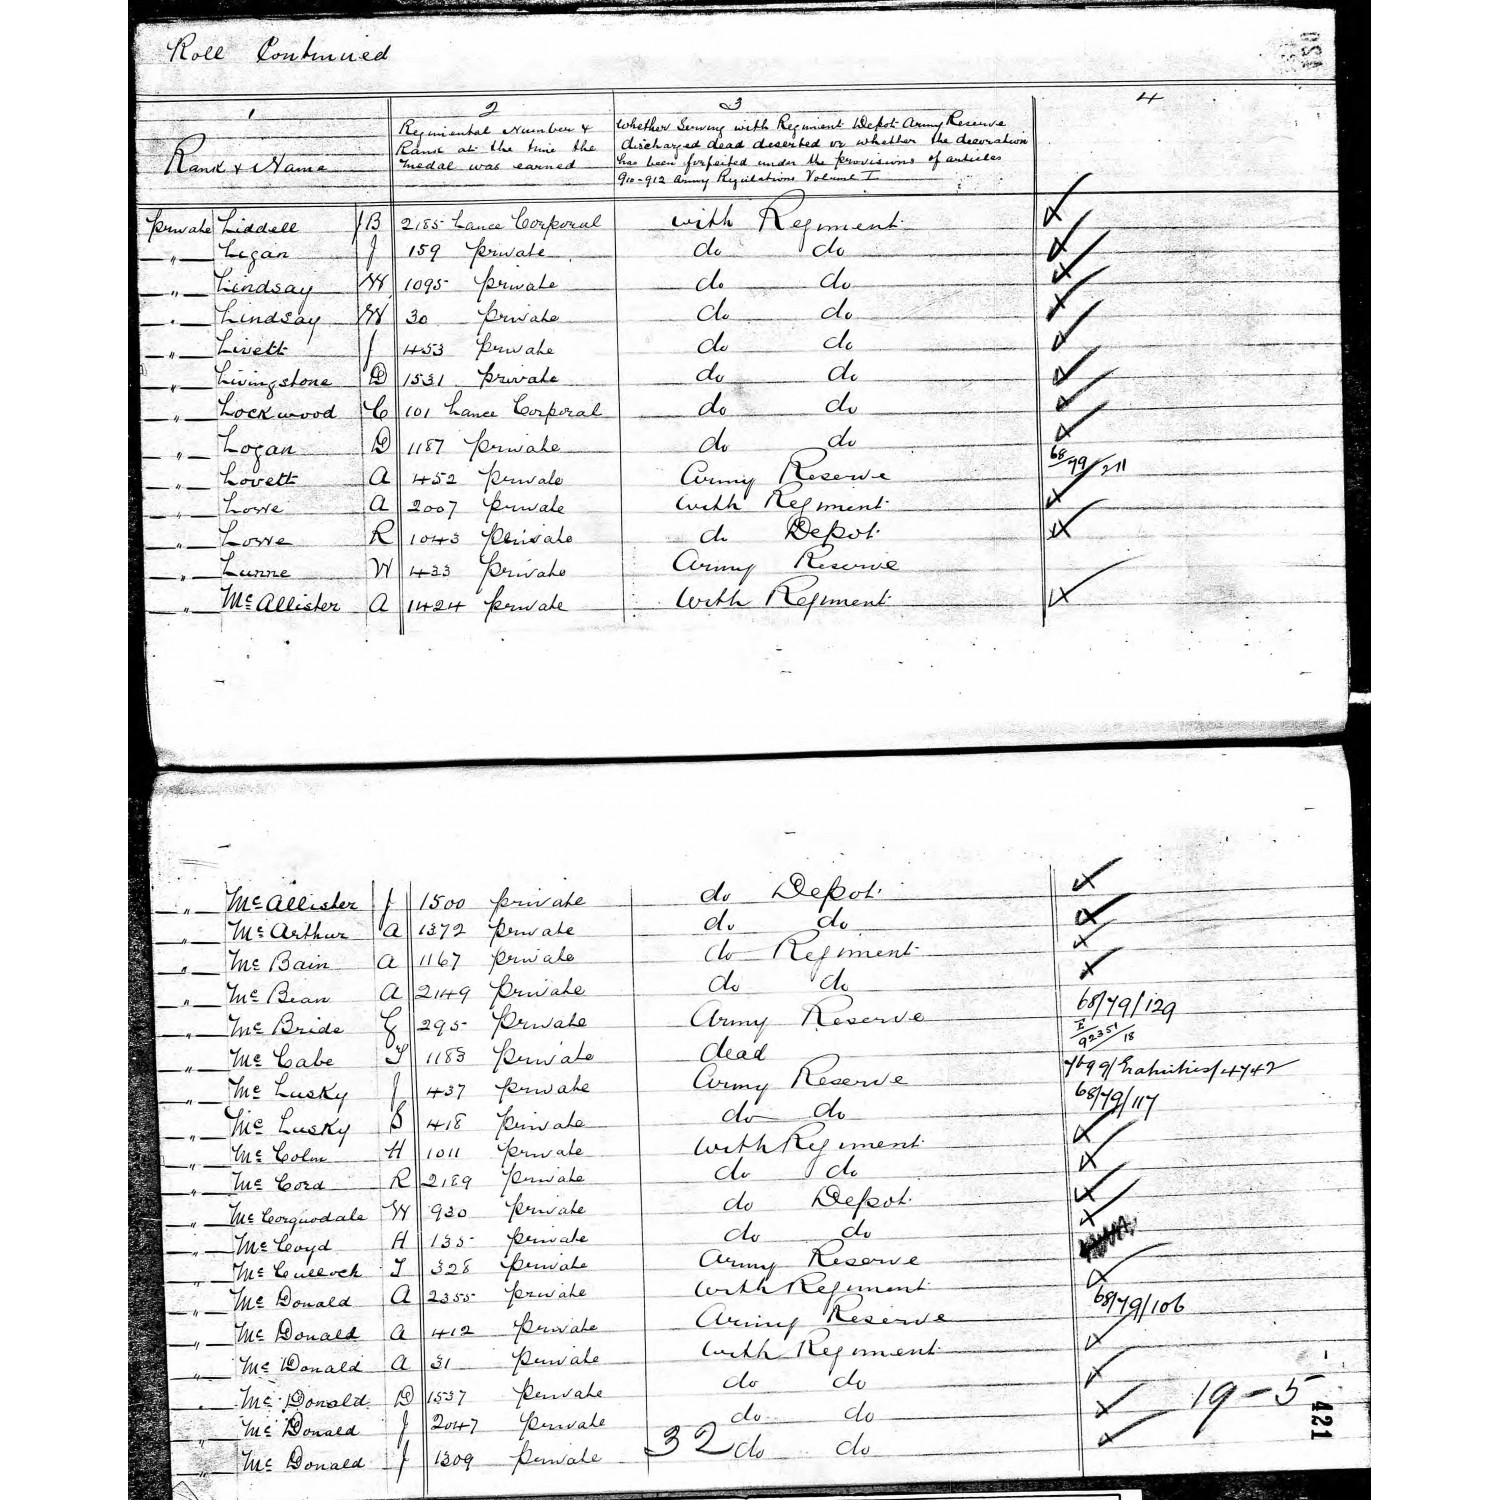 Roll Continued
1 2 3 4
Rank & Name
Regimental Number &
Rank at the time the
medal was earned
Whether Serving with Regiment Depot Army Reserve
discharged dead deserted or whether the decoration
has been forfeited under the provisions of articles
910-912 Army Regulations Volume I
Private Liddell J B 2185 Lance Corporal with Regiment
" Ligan J 159 private do do
" Lindsay W 1095 private do do
" Lindsay W 30 private do do
" Livett J 453 private do do
" Livingstone D 1531 private do do
" Lockwood C 101 Lance Corporal do do
" Logan D 1187 private do do
" Lovett A 452 private Army Reserve 68/79/211
" Lowe A 2007 private with Regiment
" Lowe R 1043 private do Depot
" Lunne W 433 private Army Reserve
" McAllister A 1424 private with Regiment
" McAllister J 1500 private do Depot
" McArthur A 1372 private do do
" McBain A 1167 private do Regiment
" McBean A 2149 private do do
" McBride G 295 private Army Reserve 68/79/129
" McCabe T 1183 private dead I/92351/18
" McLusky J 437 private Army Reserve 7699/Gratuities/4742
" McLusky B 418 private do do 68/79/117
" McColm H 1011 private with Regiment
" McCord R 2189 private do do
" McCorquodale W 930 private do Depot
" McCoyd H 135 private do do
" McCulloch T 328 private Army Reserve
" McDonald A 2355 private with Regiment
" McDonald A 412 private Army Reserve 68/79/106
" McDonald A 31 private with Regiment
" McDonald D 1537 private do do
" McDonald J 2047 private do do 19-5
" McDonald J 1309 private 32 do do
421